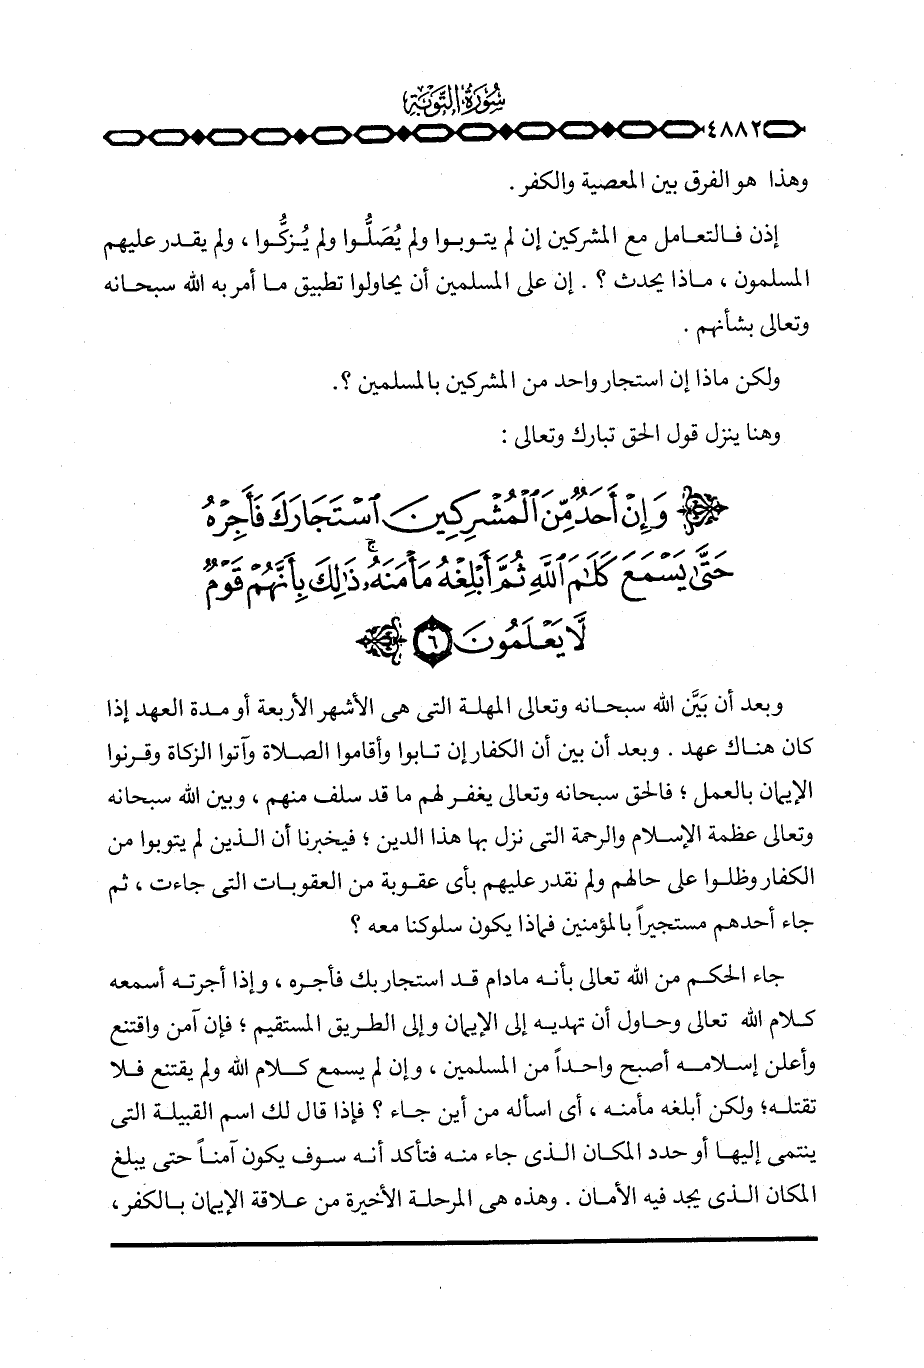 سُورَةُ التَّوبَةِ
٤٨٨٢
وهذا هو الفرق بين المعصية والكفر .
إذن فالتعامل مع المشركين إن لم يتوبوا ولم يُصَلُّوا ولم يُزكُّوا ، ولم يقدر عليهم
المسلمون ، ماذا يحدث ؟ . إن على المسلمين أن يحاولوا تطبيق ما أمر به الله سبحانه
وتعالى بشأنهم .
ولكن ماذا إن استجار واحد من المشركين بالمسلمين ؟.
وهنا ينزل قول الحق تبارك وتعالى :
وَإِنْ أَحَدٌ مِّنَ ٱلْمُشْرِكِينَ ٱسْتَجَارَكَ فَأَجِرْهُ
حَتَّىٰ يَسْمَعَ كَلَٰمَ ٱللَّهِ ثُمَّ أَبْلِغْهُ مَأْمَنَهُۥ ۚ ذَٰلِكَ بِأَنَّهُمْ قَوْمٌ
لَّا يَعْلَمُونَ ٦
وبعد أن بَيَّن الله سبحانه وتعالى المهلة التى هى الأشهر الأربعة أو مدة العهد إذا
كان هناك عهد . وبعد أن بين أن الكفار إن تابوا وأقاموا الصلاة وآتوا الزكاة وقرنوا
الإيمان بالعمل ؛ فالحق سبحانه وتعالى يغفر لهم ما قد سلف منهم ، وبين الله سبحانه
وتعالى عظمة الإسلام والرحمة التى نزل بها هذا الدين ؛ فيخبرنا أن الذين لم يتوبوا من
الكفار وظلوا على حالهم ولم نقدر عليهم بأى عقوبة من العقوبات التى جاءت ، ثم
جاء أحدهم مستجيراً بالمؤمنين فماذا يكون سلوكنا معه ؟
جاء الحكم من الله تعالى بأنه مادام قد استجار بك فأجره ، وإذا أجرته أسمعه
كلام الله تعالى وحاول أن تهديه إلى الإيمان وإلى الطريق المستقيم ؛ فإن آمن واقتنع
وأعلن إسلامه أصبح واحداً من المسلمين ، وإن لم يسمع كلام الله ولم يقتنع فلا
تقتله؛ ولكن أبلغه مأمنه ، أى اسأله من أين جاء ؟ فإذا قال لك اسم القبيلة التى
ينتمى إليها أو حدد المكان الذى جاء منه فتأكد أنه سوف يكون آمناً حتى يبلغ
المكان الذى يجد فيه الأمان . وهذه هى المرحلة الأخيرة من علاقة الإيمان بالكفر ،